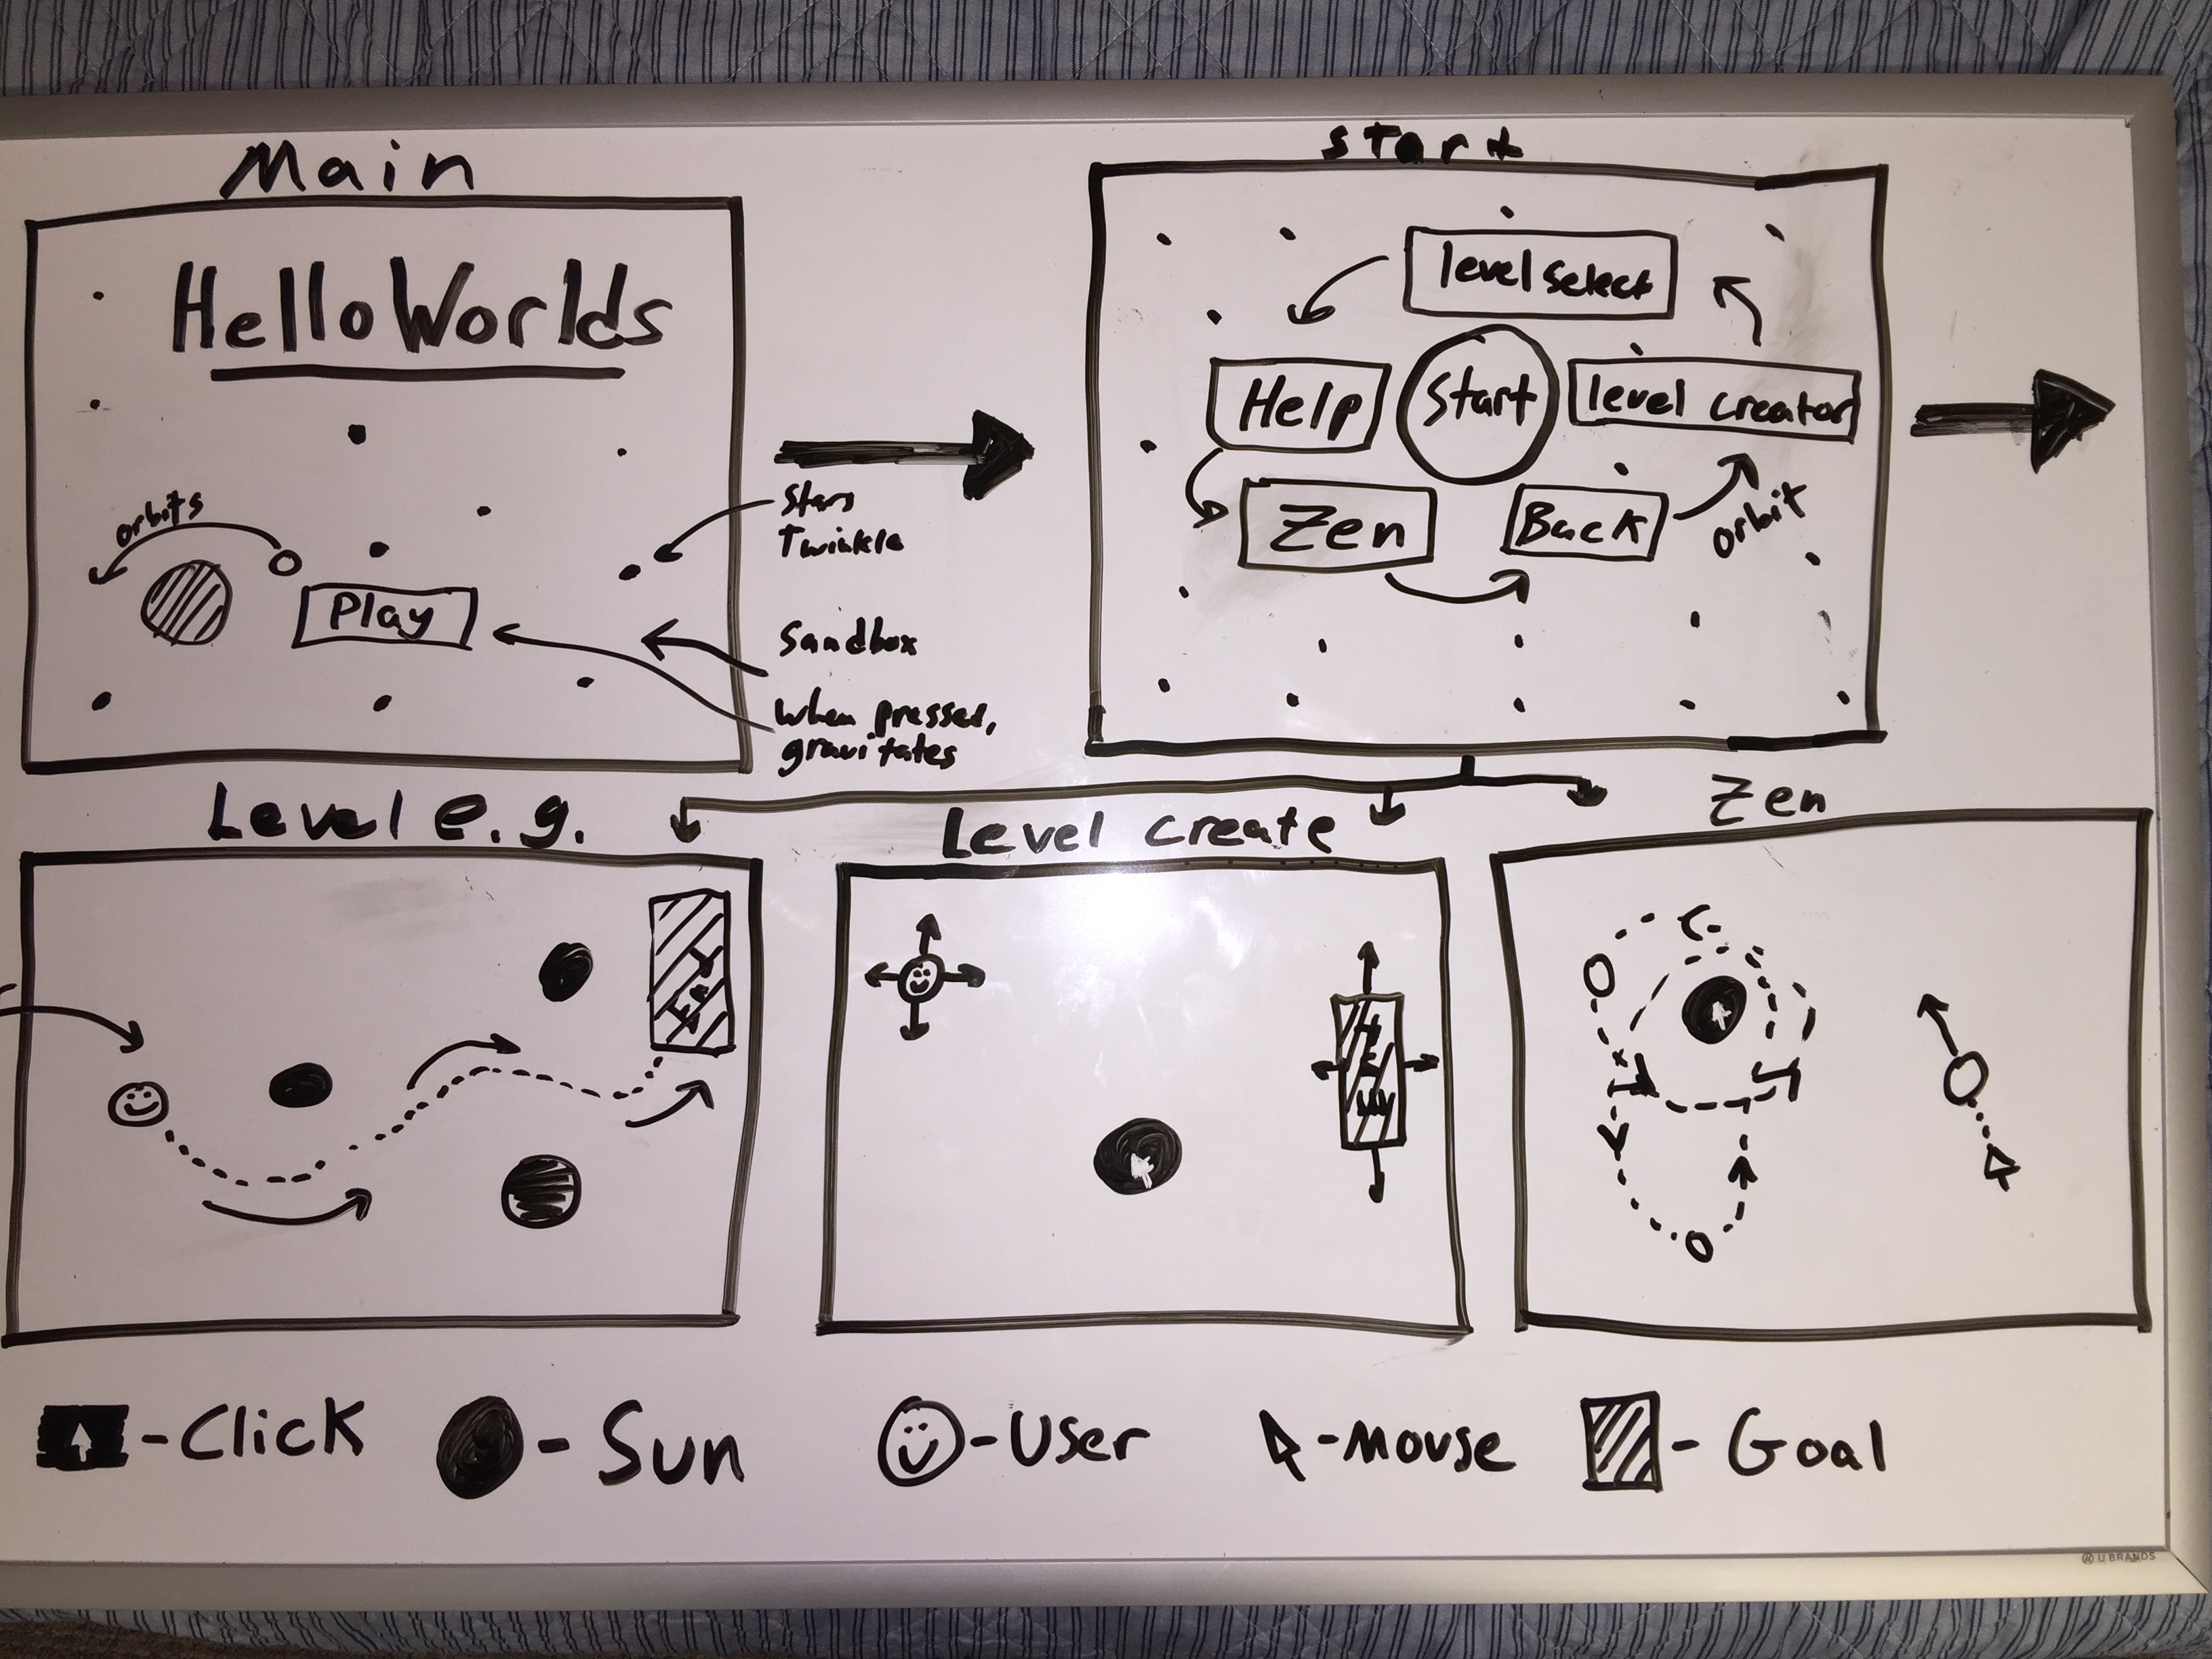 Main
Hello Worlds
orbits
Play
Stars
Twinkle
Sandbox
When pressed,
gravitates
start
level select
Help
Start
level creator
Zen
Back
orbit
Level e.g.
Level create
Zen
Click
- Sun
- User
- Mouse
- Goal
U BRANDS